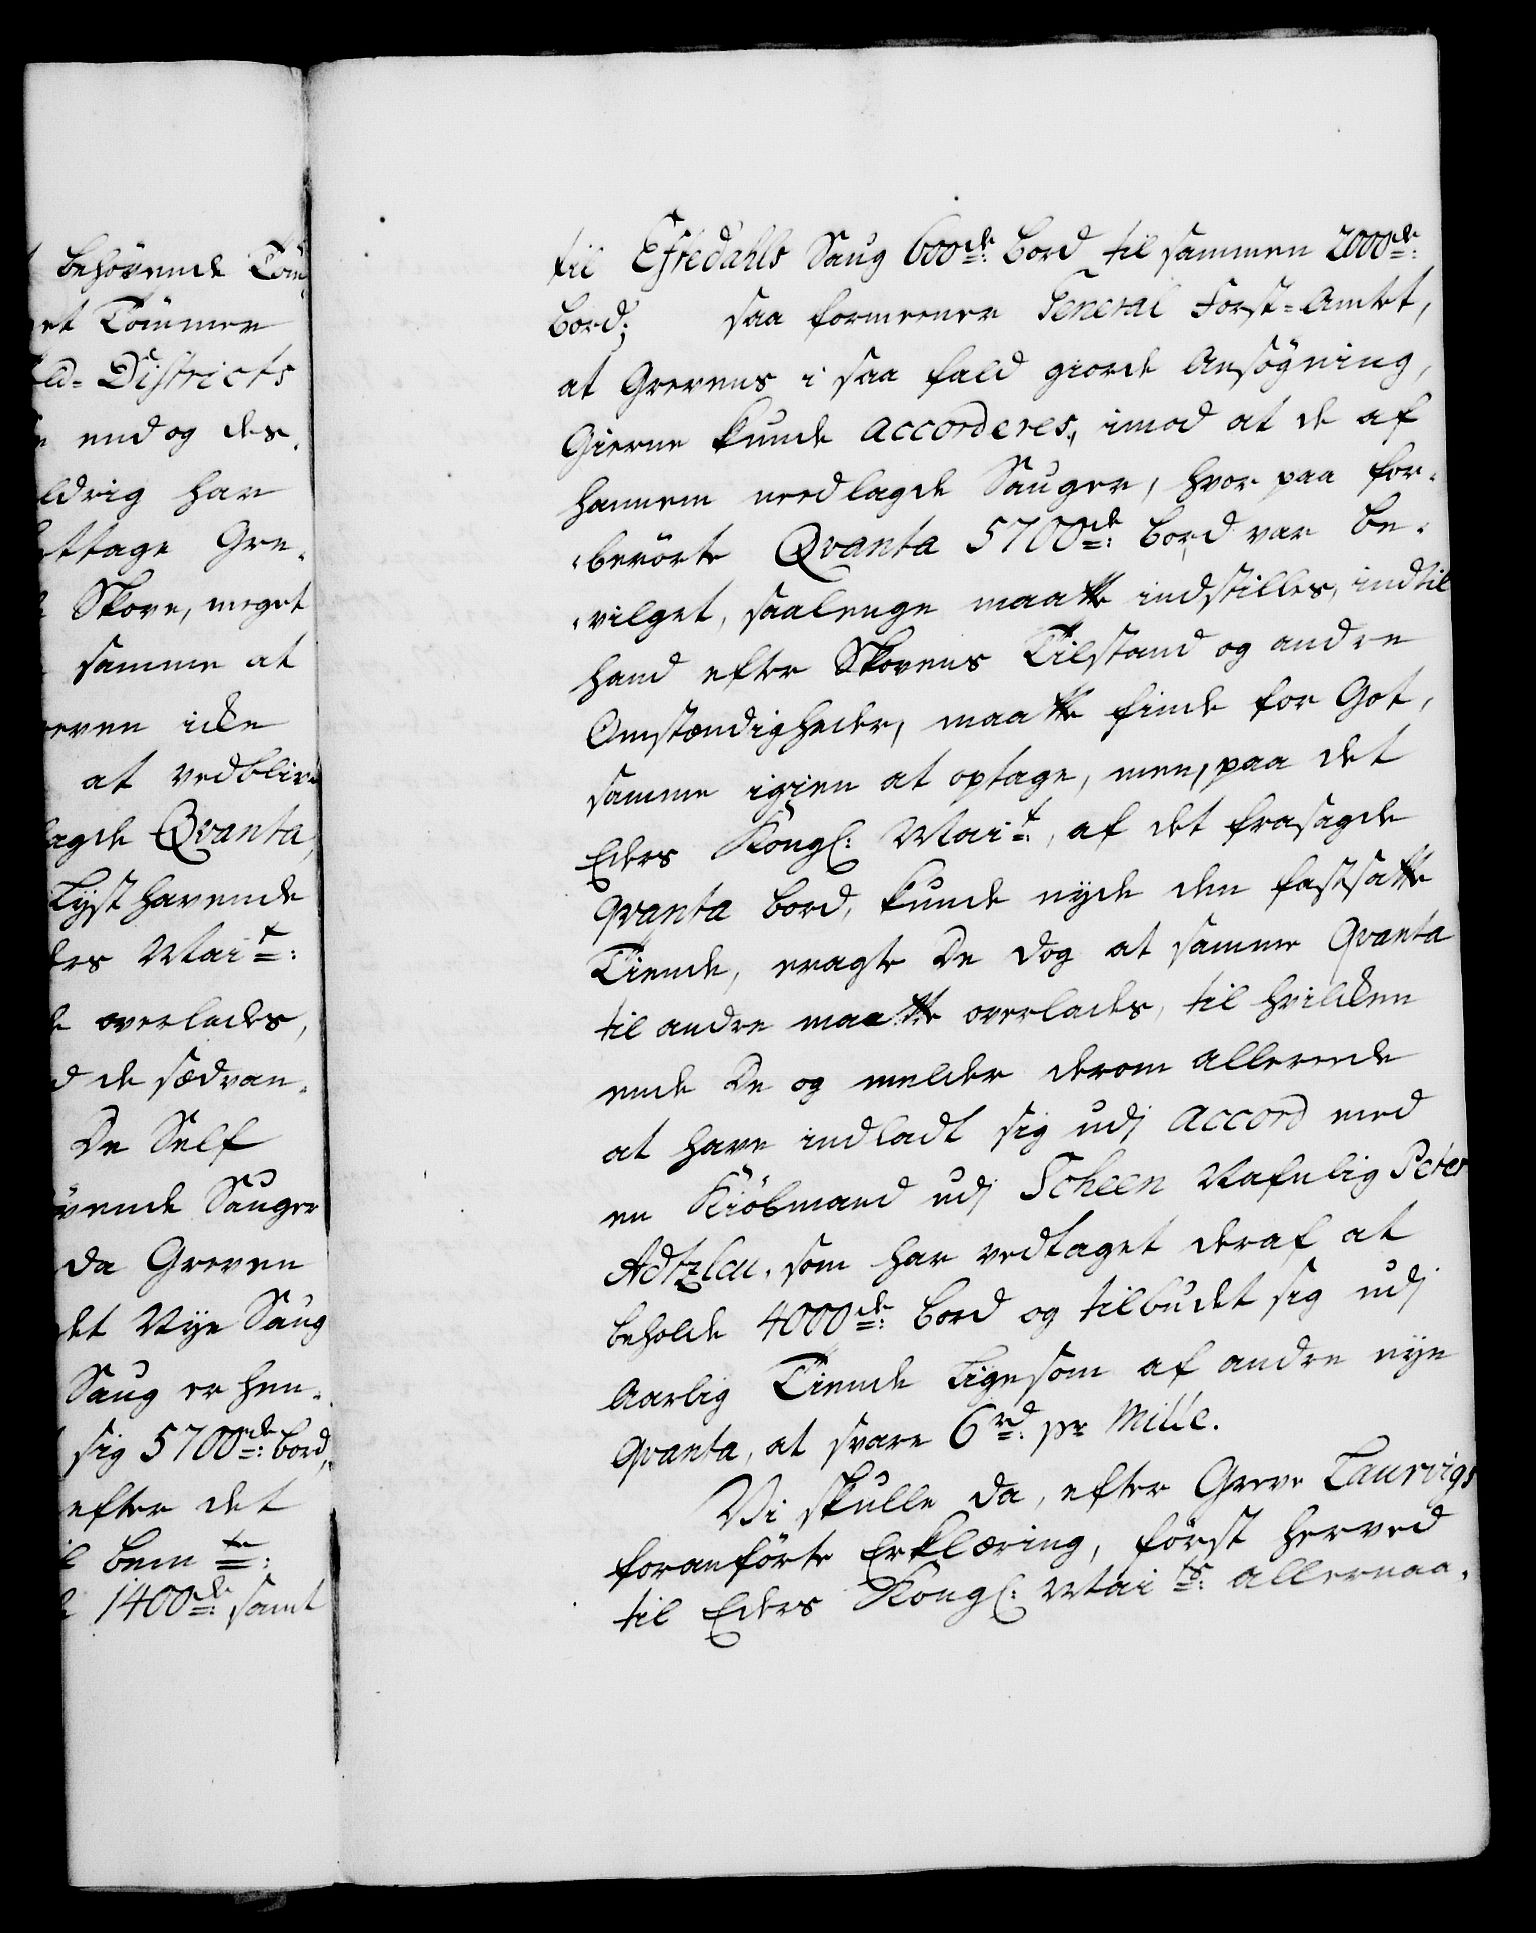 behövende Töm
et Tömmer
ld= Districts
endog des.
ldrig har
ttage Gre,
Skove, meget
samme at
even icke
at vedblive
agde Qvanta,
Lyst havende
ers Maitt:
overlades,
d de sædvan,
De Self
övende Sauger
da Greven
det Nye Saug
Saug er hen,
sig 5700de: bord,
efter det
bem te:
1400de: samt
til Efsedahls Saug 600de: bord til sammen 2000de:
bord; saa formeener General Forst=Amtet,
at Grevens i saa fald giorde Ansøgning,
Gierne kunde accorderes, imod at de af
hannem needlagde Sauger, hvor paa for,
,berörte Qvanta 5700de: bord var be,
,vilget, saalenge maatte indstilles, indtil
hand efter Skovens Tilstand og andre
Omstændigheder, maatte finde for Got,
samme igien at optage, men, paa det
Eders Kongl: Mait:, af det frasagde
qvanta bord, kunde nyde den fastsatte
Tiende, eragte De dog at samme Qvanta
til andre maatte overlades, til hvilcken
ende De og melder derom allereede
at have indladt sig udj accord med
en Kiöbmand udj Scheen Nafnlig Peter
Adtzlau, som har vedtaget deraf at
beholde 4000de: bord og tilbudet sig udj
Aarlig Tiende Ligesom af andre nye
qvanta, at svare 6rd: pr Mille.
Vi skulle da, efter Greve Laurvigs
foranförte Erklæring, först herved
til Eders Kongl: Maits: allernaa,